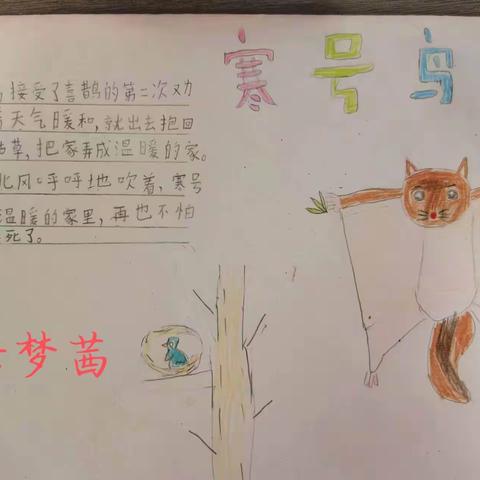 寒号鸟
接受了喜鹊的第二次劝
天气暖和,就出去抱回
草,把家弄成温暖的家。
北风呼呼地吹着,寒号
温暖的家里,再也不怕
死了。
梦茜